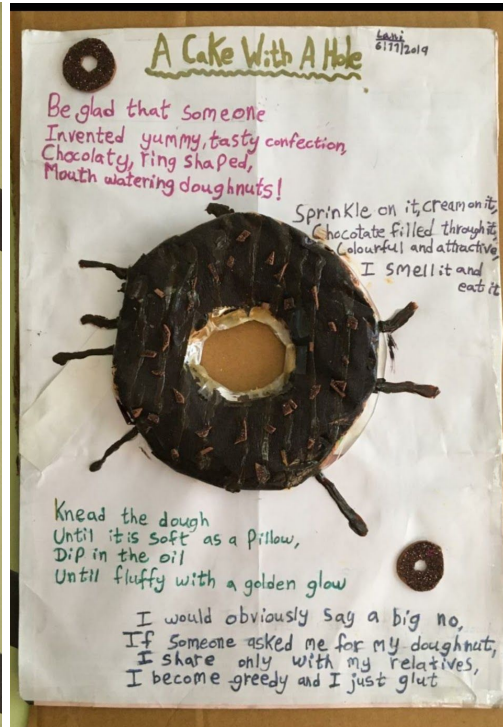 A Cake With A Hole
Lani
6/11/2019
Be glad that someone
Invented yummy, tasty confection,
Chocolaty, ring shaped,
Mouth watering doughnuts!
Sprinkle on it, cream on it,
Chocotate filled through it,
Colourful and attractive,
I smell it and
eat it
Knead the dough
Until it is soft as a Pillow,
Dip in the oil
Until fluffy with a golden glow
I would obviously say a big no,
If Someone asked me for my doughnut,
I share only with my relatives,
I become greedy and I just glut